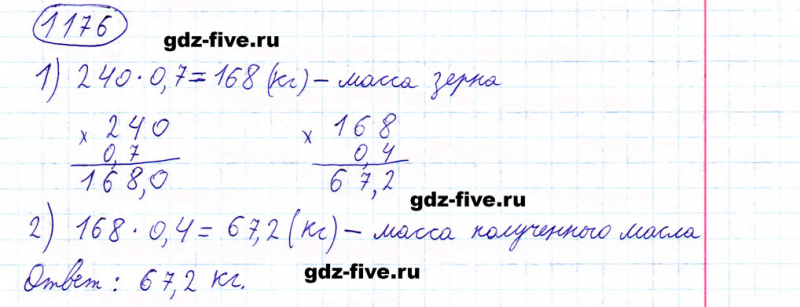 1176
gdz-five.ru
1) 240 · 0,7 = 168 (кг) – масса зерна
× 240
0,7
168,0
× 168
0,4
67,2
gdz-five.ru
2) 168 · 0,4 = 67,2 (кг) – масса полученного масла
Ответ: 67,2 кг.
gdz-five.ru